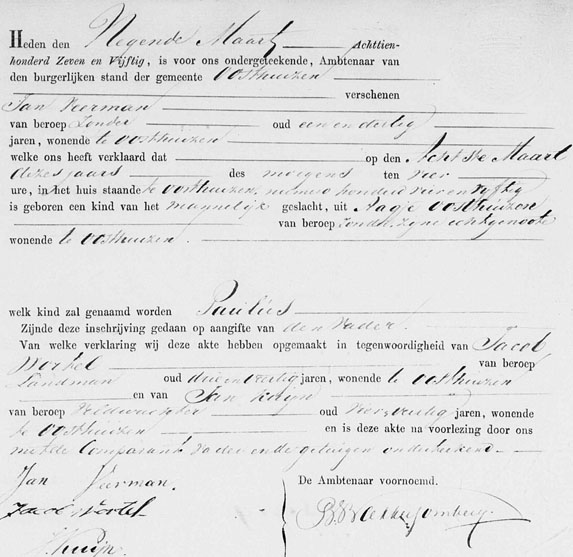 Heden den Negende Maart Achttien-
honderd Zeven en Vijftig, is voor ons ondergeteekende, Ambtenaar van
den burgerlijken stand der gemeente Oosthuizen
verschenen
Jan Veerman
van beroep Zonder oud een en dertig
jaren, wonende te Oosthuizen
welke ons heeft verklaard dat op den Achtste Maart
dezes jaars des morgens ten vier
ure, in het huis staande te Oosthuizen, numero honderd vier en vyftig
is geboren een kind van het mannelijk geslacht, uit Aagje Oosthuizen
van beroep zonder, zyne echtgenoote
wonende te Oosthuizen.
welk kind zal genaamd worden Paulus
Zijnde deze inschrijving gedaan op aangifte van den Vader.
Van welke verklaring wij deze akte hebben opgemaakt in tegenwoordigheid van Jacob
Wortel van beroep
Landman oud drie en veertig jaren, wonende te Oosthuizen
en van Jan
van beroep Veldwachter oud veertig jaren, wonende
te Oosthuizen en is deze akte na voorlezing door ons
met de Comparant Vader en de getuigen onderteekend.
De Ambtenaar voornoemd.
Jan Veerman.
Jacob Wortel